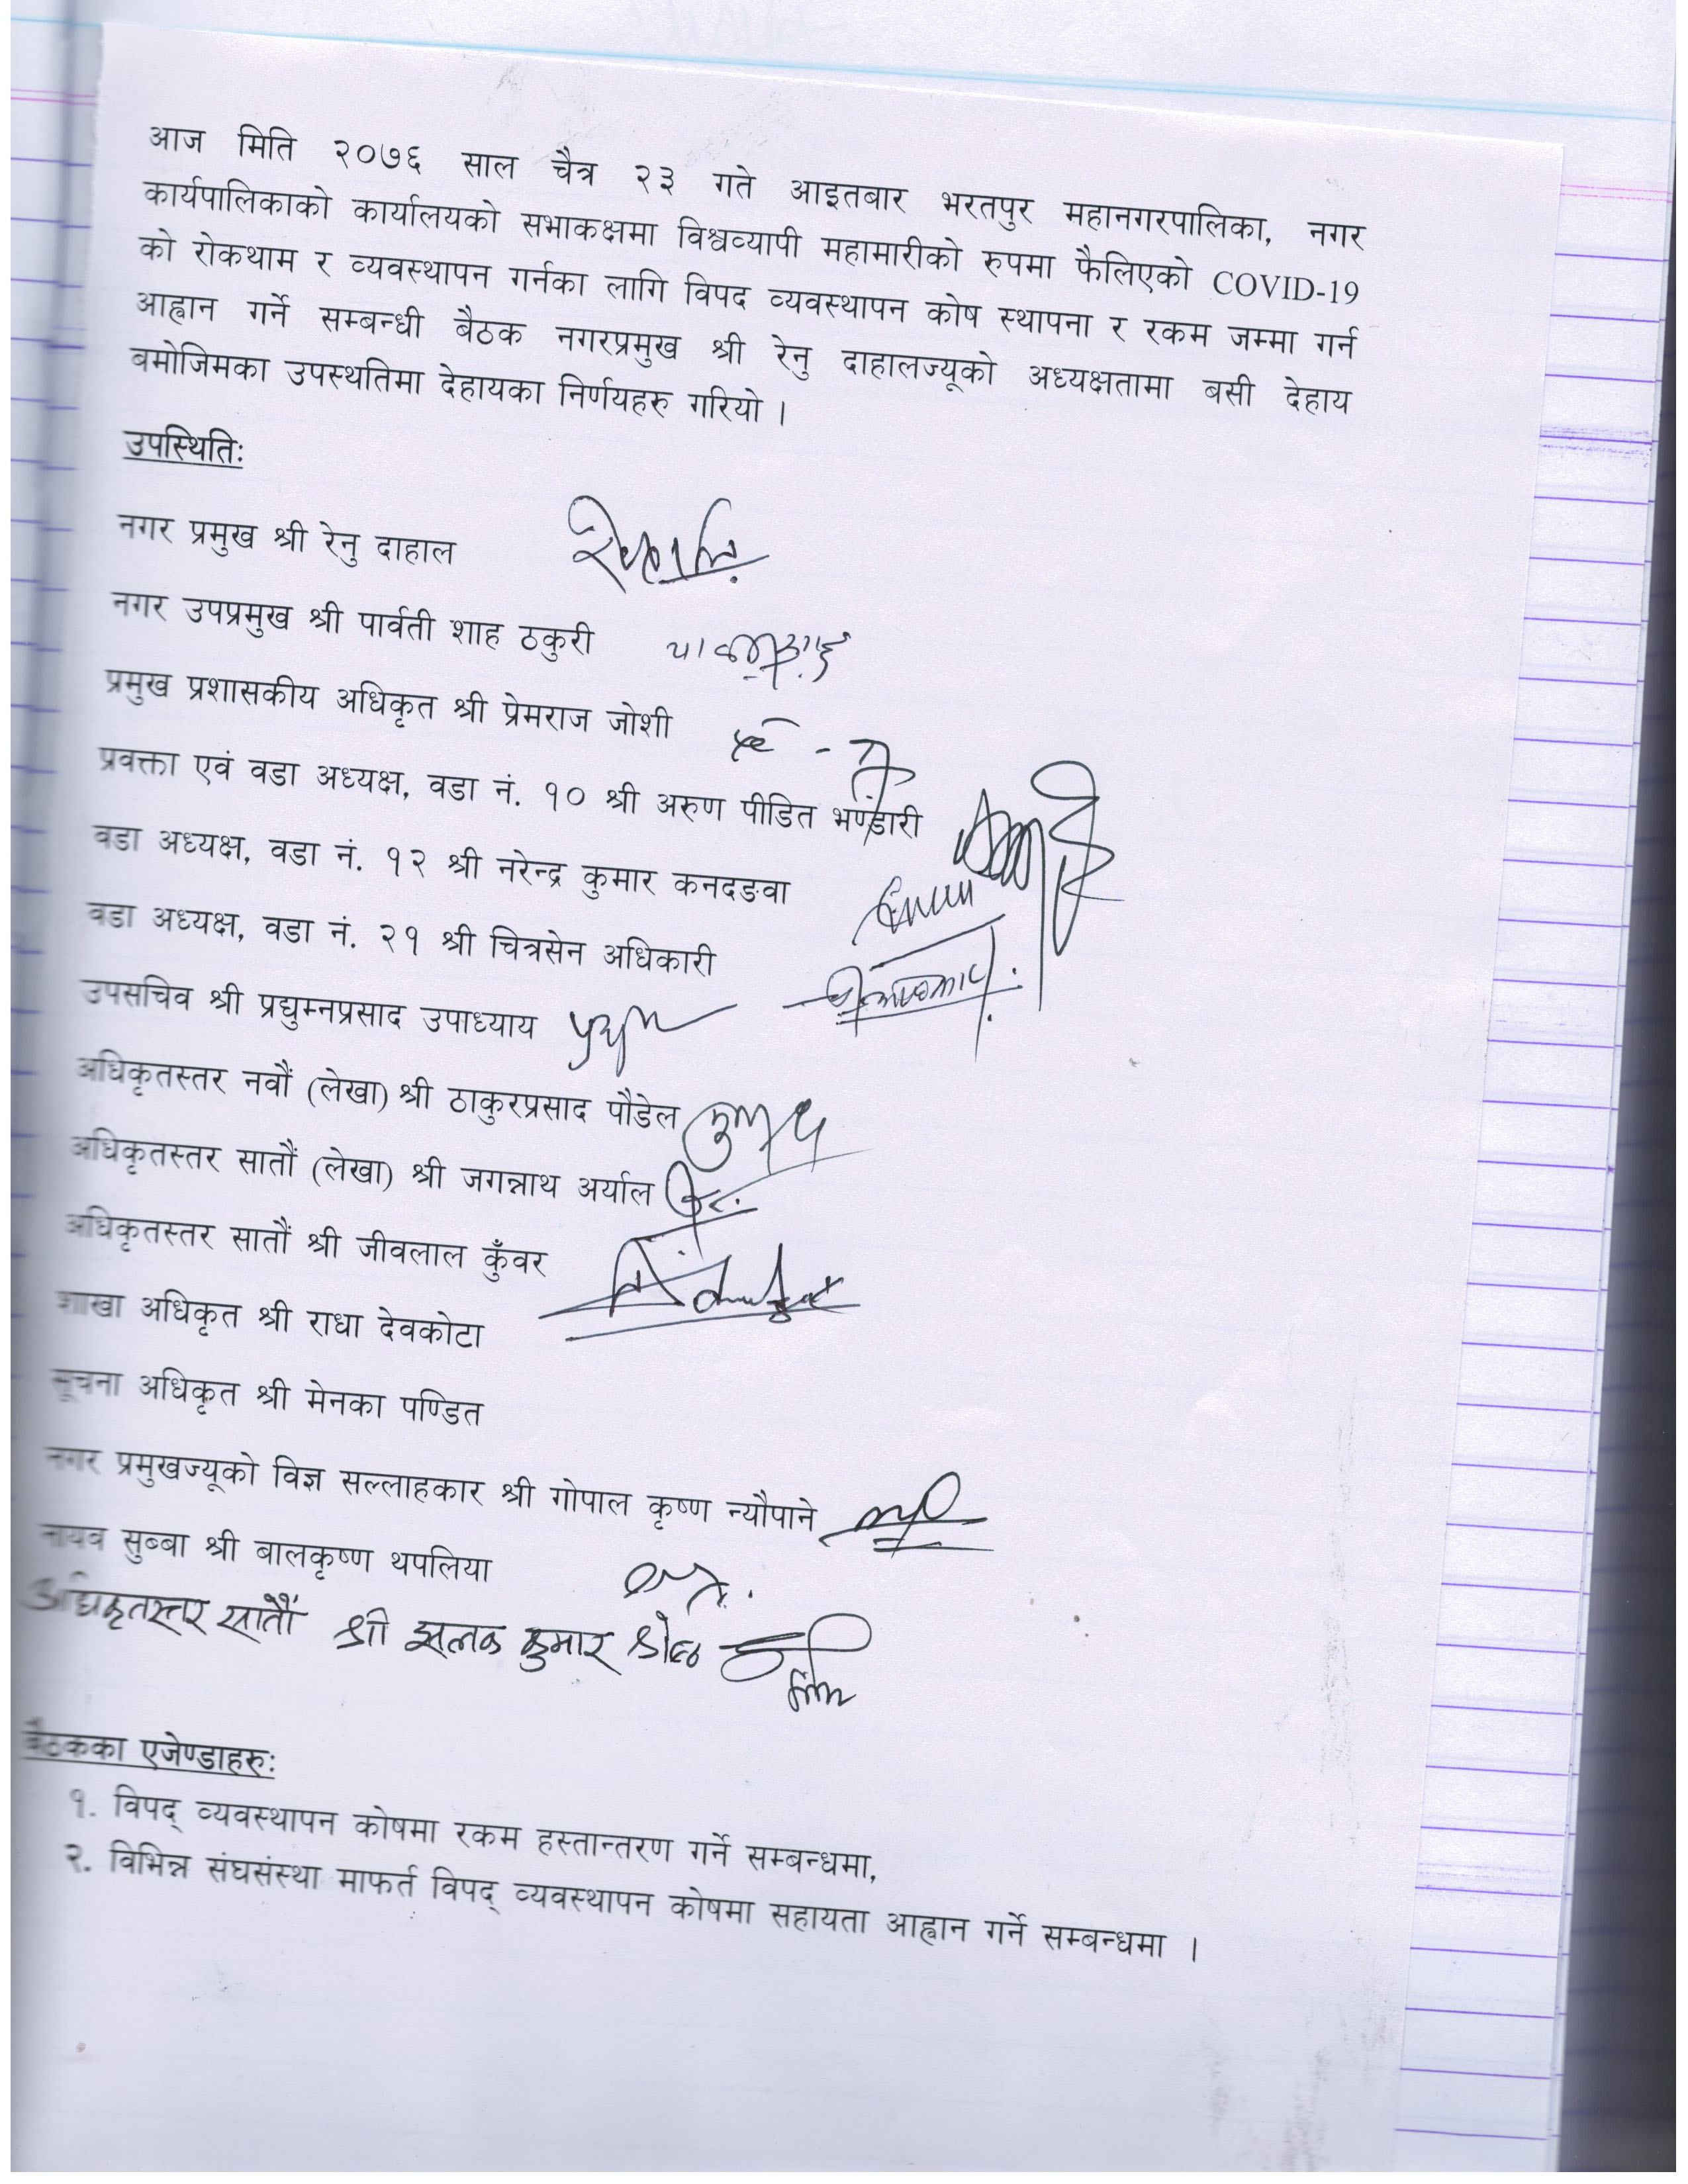 आज मिति २०७६ साल चैत्र २३ गते आइतबार भरतपुर महानगरपालिका, नगर
कार्यपालिकाको कार्यालयको सभाकक्षमा विश्वव्यापी महामारीको रुपमा फैलिएको COVID-19
को रोकथाम र व्यवस्थापन गर्नका लागि विपद व्यवस्थापन कोष स्थापना र रकम जम्मा गर्न
आह्वान गर्ने सम्बन्धी बैठक नगरप्रमुख श्री रेनु दाहालज्यूको अध्यक्षतामा बसी देहाय
बमोजिमका उपस्थतिमा देहायका निर्णयहरु गरियो ।
उपस्थितिः
नगर प्रमुख श्री रेनु दाहाल
नगर उपप्रमुख श्री पार्वती शाह ठकुरी
प्रमुख प्रशासकीय अधिकृत श्री प्रेमराज जोशी
प्रवक्ता एवं वडा अध्यक्ष, वडा नं. १० श्री अरुण पीडित भण्डारी
वडा अध्यक्ष, वडा नं. १२ श्री नरेन्द्र कुमार कनदङवा
वडा अध्यक्ष, वडा नं. २१ श्री चित्रसेन अधिकारी
उपसचिव श्री प्रद्युम्नप्रसाद उपाध्याय
अधिकृतस्तर नवौं (लेखा) श्री ठाकुरप्रसाद पौडेल
अधिकृतस्तर सातौं (लेखा) श्री जगन्नाथ अर्याल
अधिकृतस्तर सातौं श्री जीवलाल कुँवर
शाखा अधिकृत श्री राधा देवकोटा
सूचना अधिकृत श्री मेनका पण्डित
नगर प्रमुखज्यूको विज्ञ सल्लाहकार श्री गोपाल कृष्ण न्यौपाने
नायव सुब्बा श्री बालकृष्ण थपलिया
अधिकृतस्तर सातौं श्री झलक कुमार श्रेष्ठ
बैठकका एजेण्डाहरुः
१. विपद् व्यवस्थापन कोषमा रकम हस्तान्तरण गर्ने सम्बन्धमा,
२. विभिन्न संघसंस्था मार्फत विपद् व्यवस्थापन कोषमा सहायता आह्वान गर्ने सम्बन्धमा ।